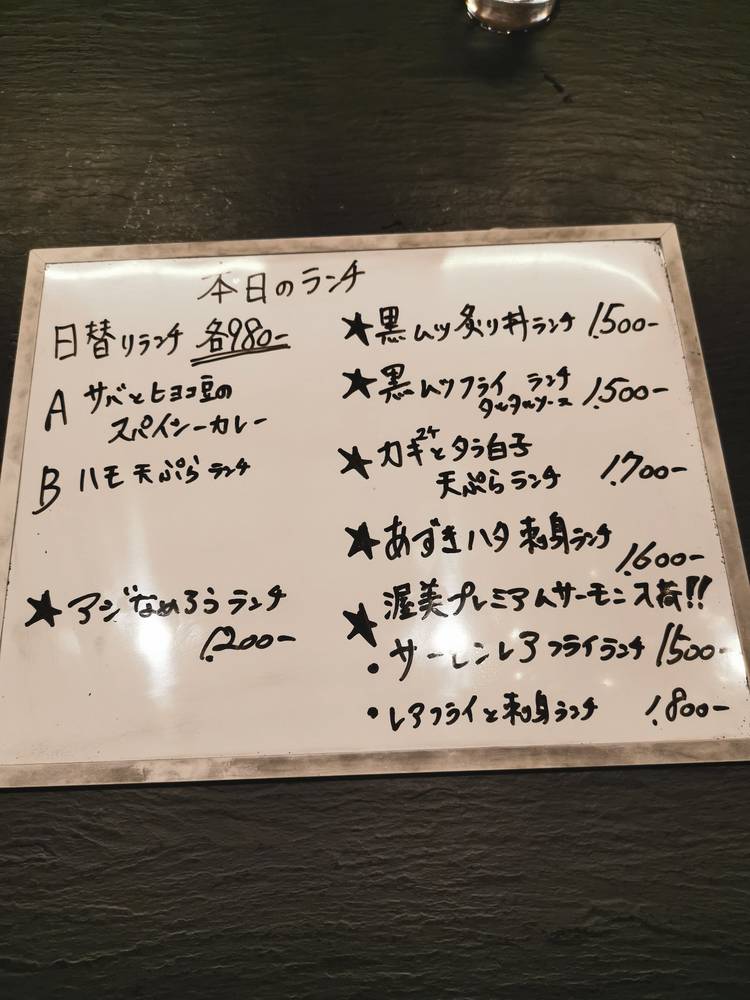 本日のランチ
日替りランチ 各980-
A サバとヒヨコ豆の
スパイシーカレー
B ハモ天ぷらランチ
★アジなめろうランチ
1.200-
★黒ムツ炙り丼ランチ 1.500-
★黒ムツフライ ランチ
タルタルソース 1.500-
★カキ2ケとタラ白子
天ぷらランチ 1.700-
★あずきハタ刺身ランチ
1.600-
★渥美プレミアムサーモン入荷!!
・サーモンレアフライランチ 1.500-
・レアフライと刺身ランチ 1.800-